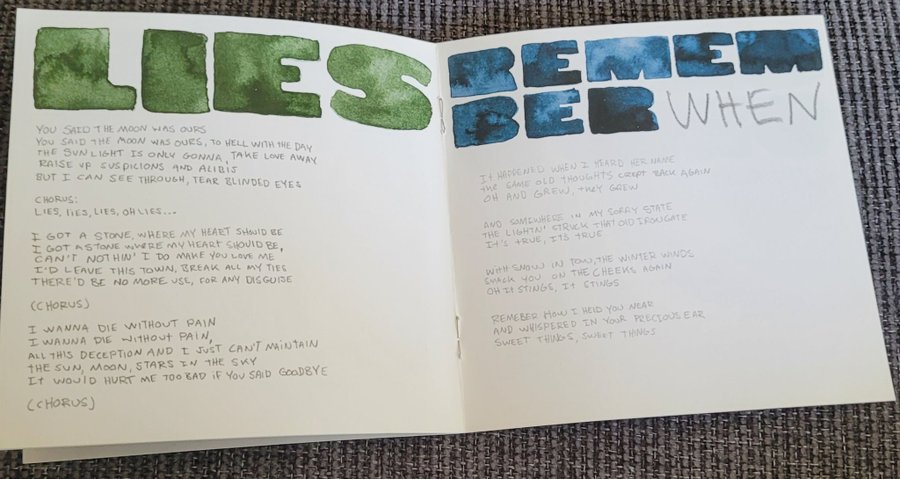 LIES
YOU SAID THE MOON WAS OURS
YOU SAID THE MOON WAS OURS, TO HELL WITH THE DAY
THE SUNLIGHT IS ONLY GONNA, TAKE LOVE AWAY
RAISE UP SUSPICIONS AND ALIBIS
BUT I CAN SEE THROUGH, TEAR BLINDED EYES
CHORUS:
LIES, LIES, LIES, OH LIES...
I GOT A STONE, WHERE MY HEART SHOULD BE
I GOT A STONE WHERE MY HEART SHOULD BE,
CAN'T NOTHIN' I DO MAKE YOU LOVE ME
I'D LEAVE THIS TOWN, BREAK ALL MY TIES
THERE'D BE NO MORE USE, FOR ANY DISGUISE
(CHORUS)
I WANNA DIE WITHOUT PAIN
I WANNA DIE WITHOUT PAIN,
ALL THIS DECEPTION AND I JUST CAN'T MAINTAIN
THE SUN, MOON, STARS IN THE SKY
IT WOULD HURT ME TOO BAD IF YOU SAID GOODBYE
(CHORUS)
REMEM
BER WHEN
IT HAPPENED WHEN I HEARD HER NAME
THE SAME OLD THOUGHTS CREPT BACK AGAIN
OH AND GREW, THEY GREW
AND SOMEWHERE IN MY SORRY STATE
THE LIGHTNIN' STRUCK THAT OLD IRONGATE
IT'S TRUE, IT'S TRUE
WITH SNOW IN TOW, THE WINTER WINDS
SMACK YOU ON THE CHEEKS AGAIN
OH IT STINGS, IT STINGS
REMEBER HOW I HELD YOU NEAR
AND WHISPERED IN YOUR PRECIOUS EAR
SWEET THINGS, SWEET THINGS